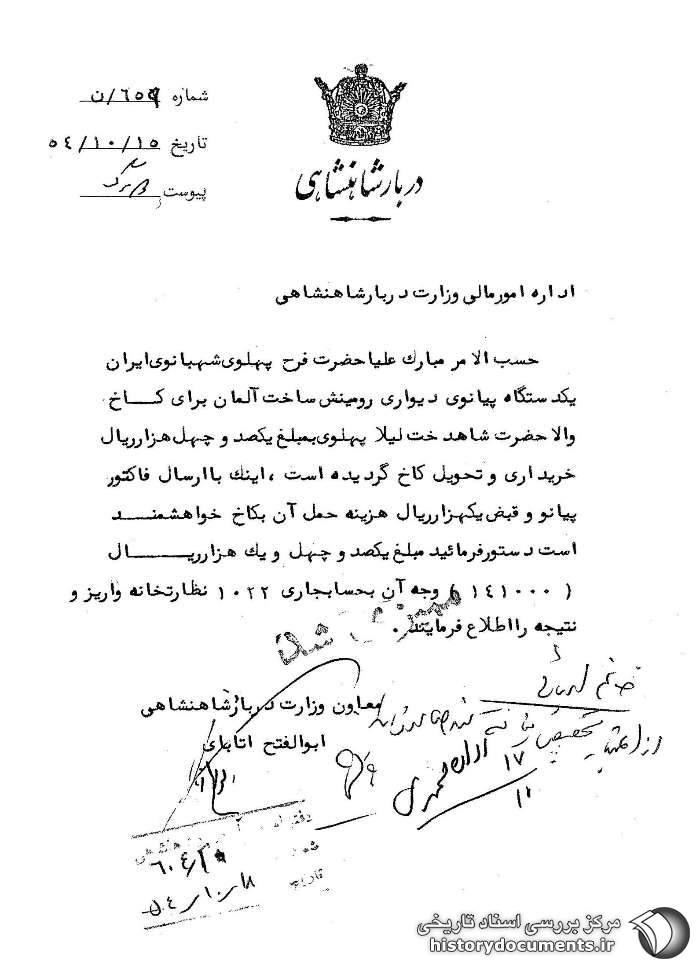 شماره ٦٥٩/ن
تاریخ ٥٤/١٠/١٥
پیوست برگ
دربار شاهنشاهی
اداره امور مالی وزارت دربار شاهنشاهی
حسب الامر مبارك علیاحضرت فرح پهلوی شهبانوی ایران
یکدستگاه پیانوی دیواری رومینش ساخت آلمان برای کاخ
والاحضرت شاهدخت لیلا پهلوی بمبلغ یکصد و چهل هزار ریال
خریداری و تحویل کاخ گردیده است ، اینك با ارسال فاکتور
پیانو و قبض یکهزار ریال هزینه حمل آن بکاخ خواهشمند
است دستور فرمائید مبلغ یکصد و چهل و یك هزار ریال
( ١٤١٠٠٠ ) وجه آن بحسابجاری ١٠٢٢ نظارتخانه واریز و
نتیجه را اطلاع فرمایند .
معاون وزارت دربار شاهنشاهی
ابوالفتح اتابای
خانم
از اعتبار
١٧
١٠
دفتر
شماره
تاریخ ٥٤/١٠/١٨
مرکز بررسی اسناد تاریخی
historydocuments.ir